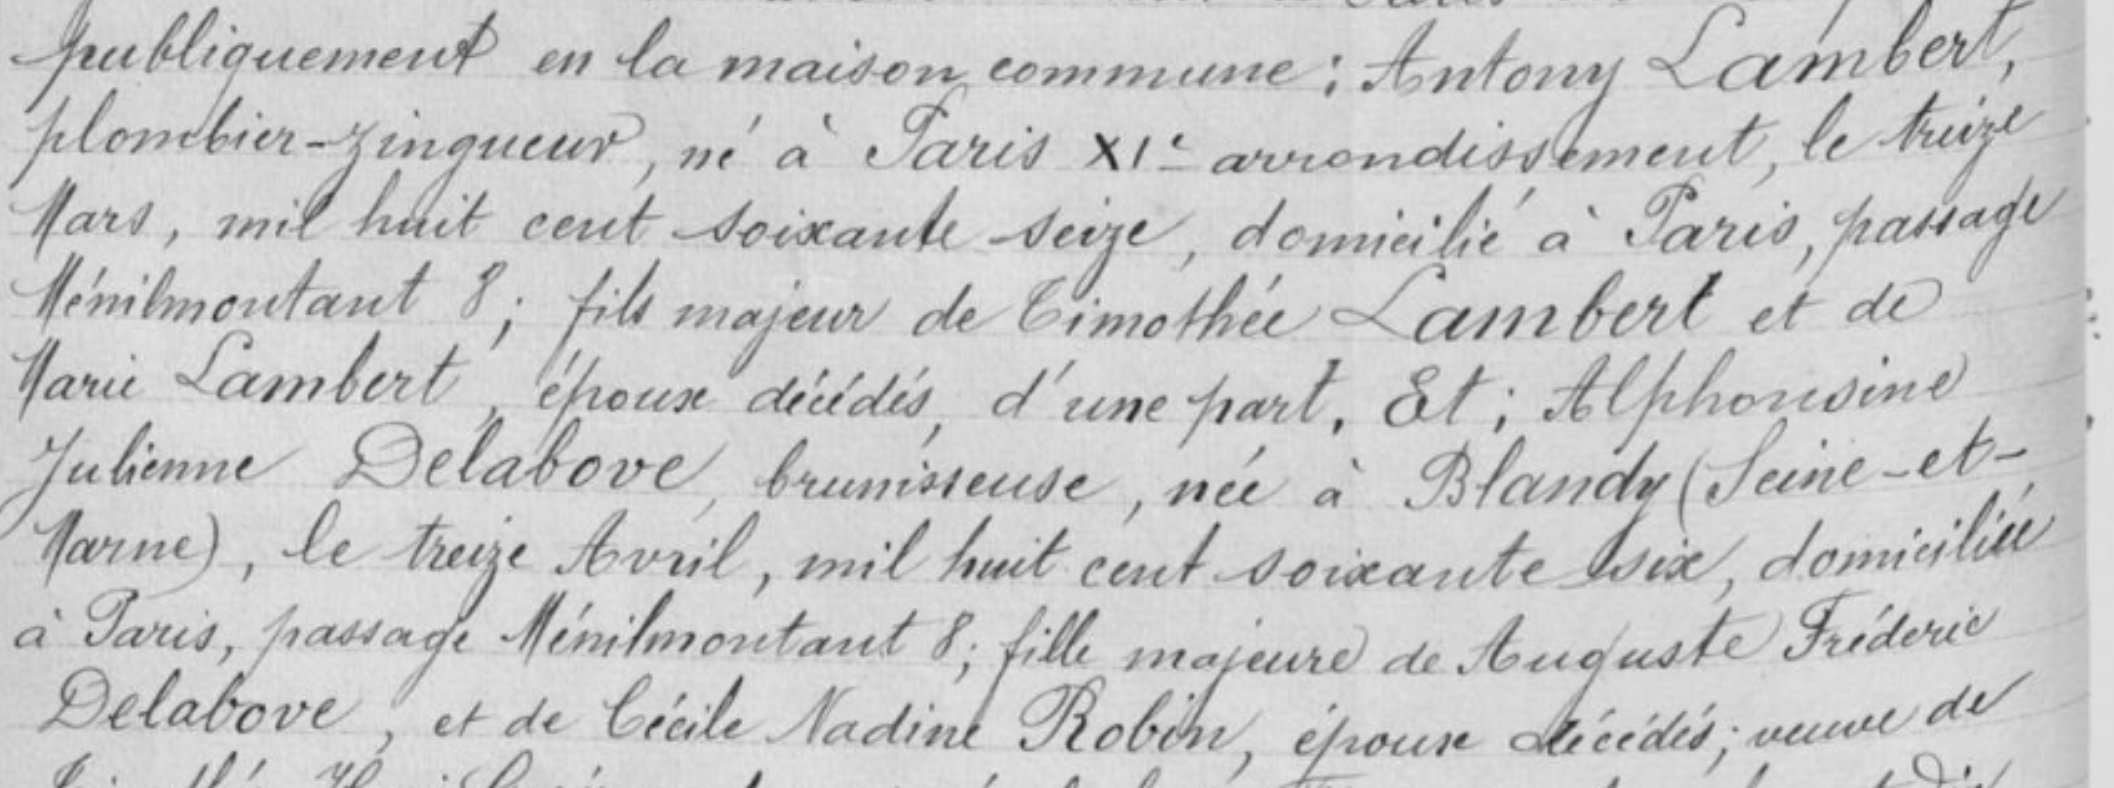 publiquement en la maison commune : Antony Lambert,
plombier-zingueur, né à Paris XIe arrondissement, le treize
Mars, mil huit cent soixante seize, domicilié à Paris, passage
Ménilmontant 8; fils majeur de Timothée Lambert et de
Marie Lambert, époux décédés, d'une part. Et; Alphonsine
Julienne Delabove, brunisseuse, née à Blandy (Seine-et-
Marne), le treize Avril, mil huit cent soixante six, domiciliée
à Paris, passage Ménilmontant 8; fille majeure de Auguste Fréderic
Delabove, et de Cécile Nadine Robin, époux décédés; veuve de